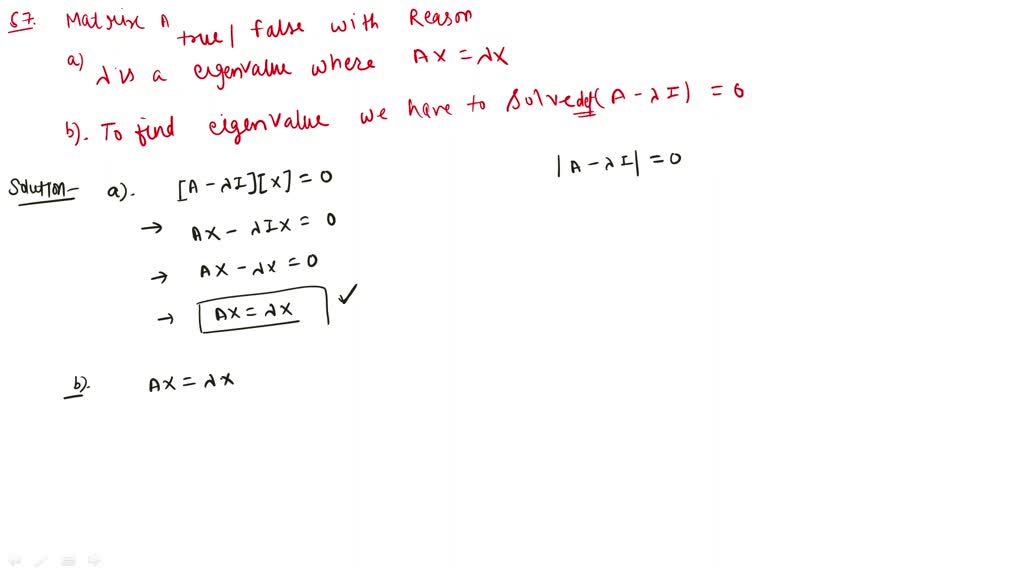 57. Matrix A true | false with Reason
a) λ is a eigenvalue where AX = λX
b). To find eigenvalue we have to solve det(A - λI) = 0
Solution- a). [A - λI][X] = 0
|A - λI| = 0
→ AX - λIX = 0
→ AX - λX = 0
→ AX = λX ✓
b). AX = λX